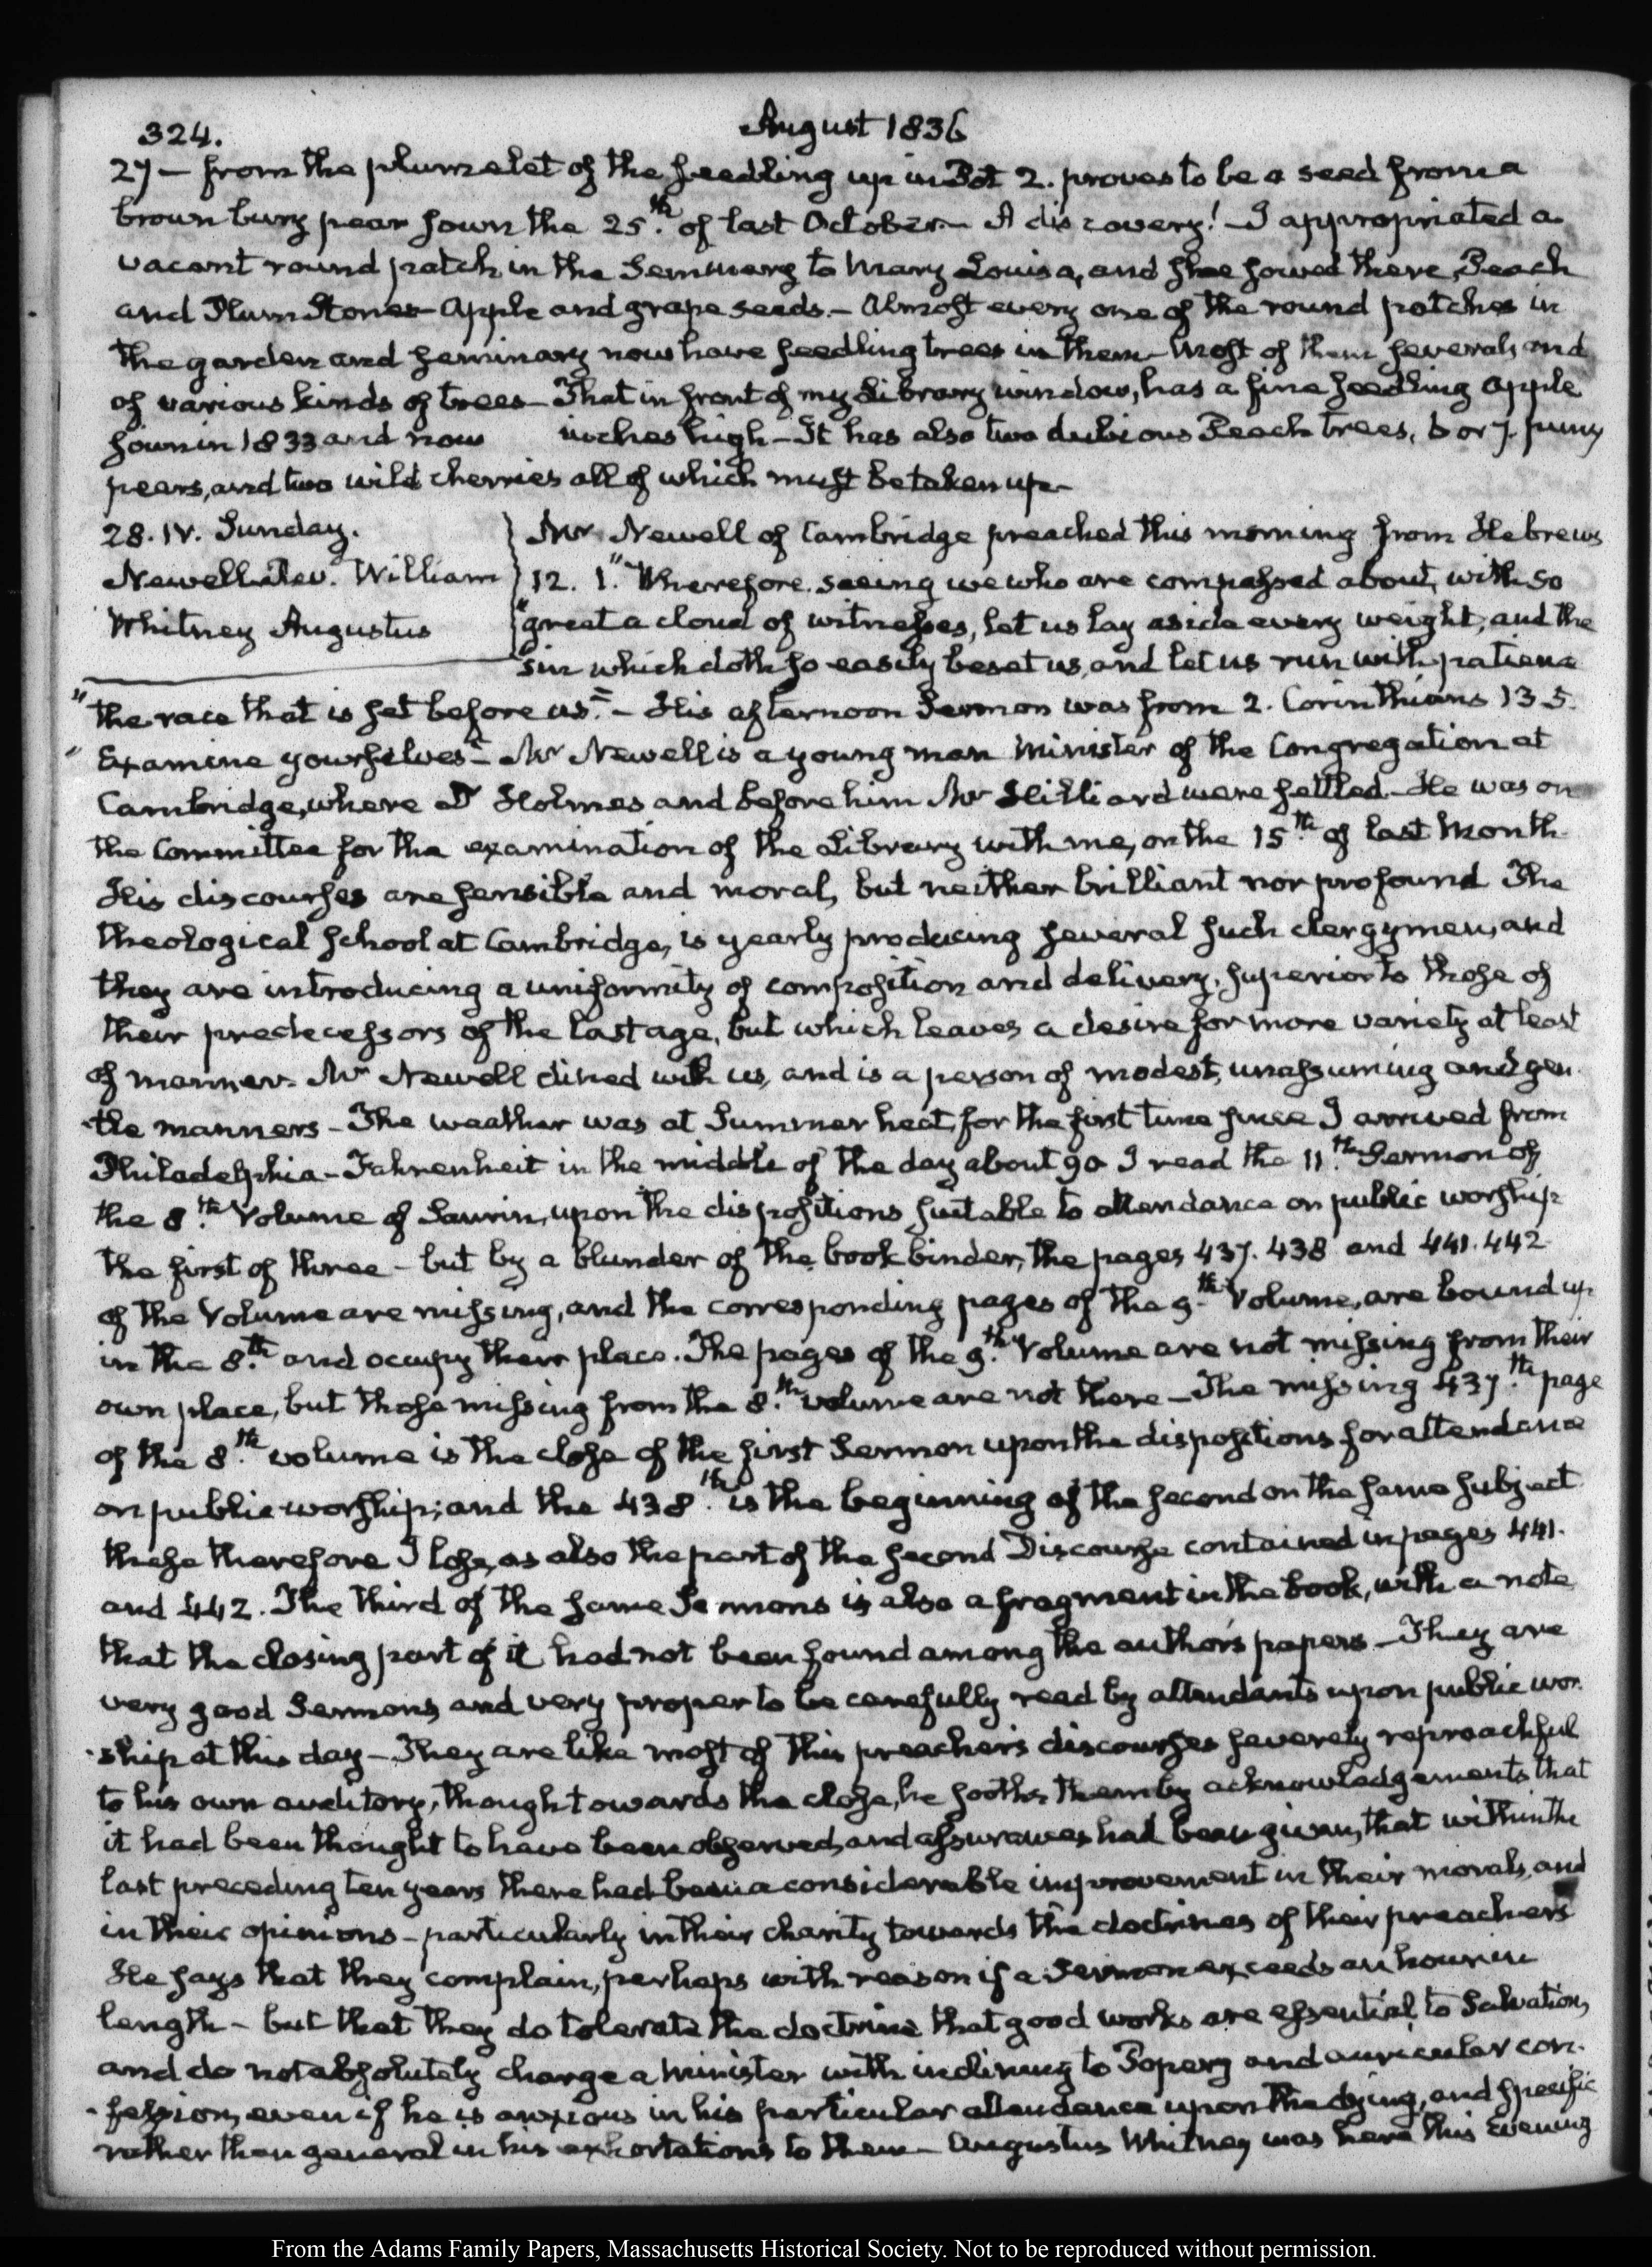 324.
August 1836
27 — from the plumelet of the seedling up in Pot 2. proves to be a seed from a
brown bury pear sown the 25th. of last October.— A discovery! — I appropriated a
vacant round patch in the Seminary to Mary Louisa, and she sowed there, Peach
and Plum Stones — Apple and grape seeds. — Almost every one of the round patches in
the garden and seminary now have seedling trees in them — Most of them several, and
of various kinds of trees — That in front of my Library window, has a fine seedling Apple
sown in 1833 and now inches high — It has also two dubious Peach trees, 6 or 7 puny
pears, and two wild cherries all of which must be taken up —
28. IV. Sunday.
Newell Rev.d William
Whitney Augustus
Mr Newell of Cambridge preached this morning from Hebrews
12. 1. "Wherefore, seeing we who are compassed about, with so
"great a cloud of witnesses, let us lay aside every weight, and the
"sin which doth so easily beset us, and let us run with patience
"the race that is set before us." — His afternoon Sermon was from 2. Corinthians 13 5.
"Examine yourselves" — Mr Newell is a young man Minister of the Congregation at
Cambridge, where Dr Holmes and before him Mr Hilliard were settled — He was on
the Committee for the examination of the Library with me, on the 15th. of last Month
His discourses are sensible and moral, but neither brilliant nor profound The
theological school at Cambridge, is yearly producing several such clergymen, and
they are introducing a uniformity of composition and delivery, superior to those of
their predecessors of the last age, but which leaves a desire for more variety at least
of manner. Mr Newell dined with us, and is a person of modest, unassuming and gen-
-tle manners — The weather was at Summer heat, for the first time since I arrived from
Philadelphia — Fahrenheit in the middle of the day about 90 I read the 11th. Sermon of
the 8th. Volume of Saurin, upon the dispositions suitable to attendance on public worship
the first of three — but by a blunder of the book binder, the pages 437. 438 and 441. 442
of the Volume are missing, and the corresponding pages of the 9th. Volume, are bound up
in the 8th. and occupy their place. The pages of the 9th. Volume are not missing from their
own place, but those missing from the 8th. volume are not there — The missing 437th. page
of the 8th. volume is the close of the first Sermon upon the dispositions for attendance
on public worship; and the 438th. is the beginning of the second on the same subject
these therefore I lose, as also the part of the second Discourse contained in pages 441.
and 442. The third of the same Sermons is also a fragment in the book, with a note
that the closing part of it had not been found among the author's papers — They are
very good Sermons and very proper to be carefully read by attendants upon public wor-
-ship at this day — They are like most of this preacher's discourses severely reproachful
to his own auditory, though towards the close, he soothes them by acknowledgements that
it had been thought to have been observed, and assurances had been given, that within the
last preceding ten years there had been a considerable improvement in their morals, and
in their opinions — particularly in their charity towards the doctrines of their preachers
He says that they complain, perhaps with reason if a Sermon exceeds an hour in
length — but that they do tolerate the doctrine that good works are essential to Salvation,
and do not absolutely charge a Minister with inclining to Popery and auricular con-
-fession, even if he is anxious in his particular attendance upon the dying, and specific
rather than general in his exhortations to them — Augustus Whitney was here this Evening
From the Adams Family Papers, Massachusetts Historical Society. Not to be reproduced without permission.